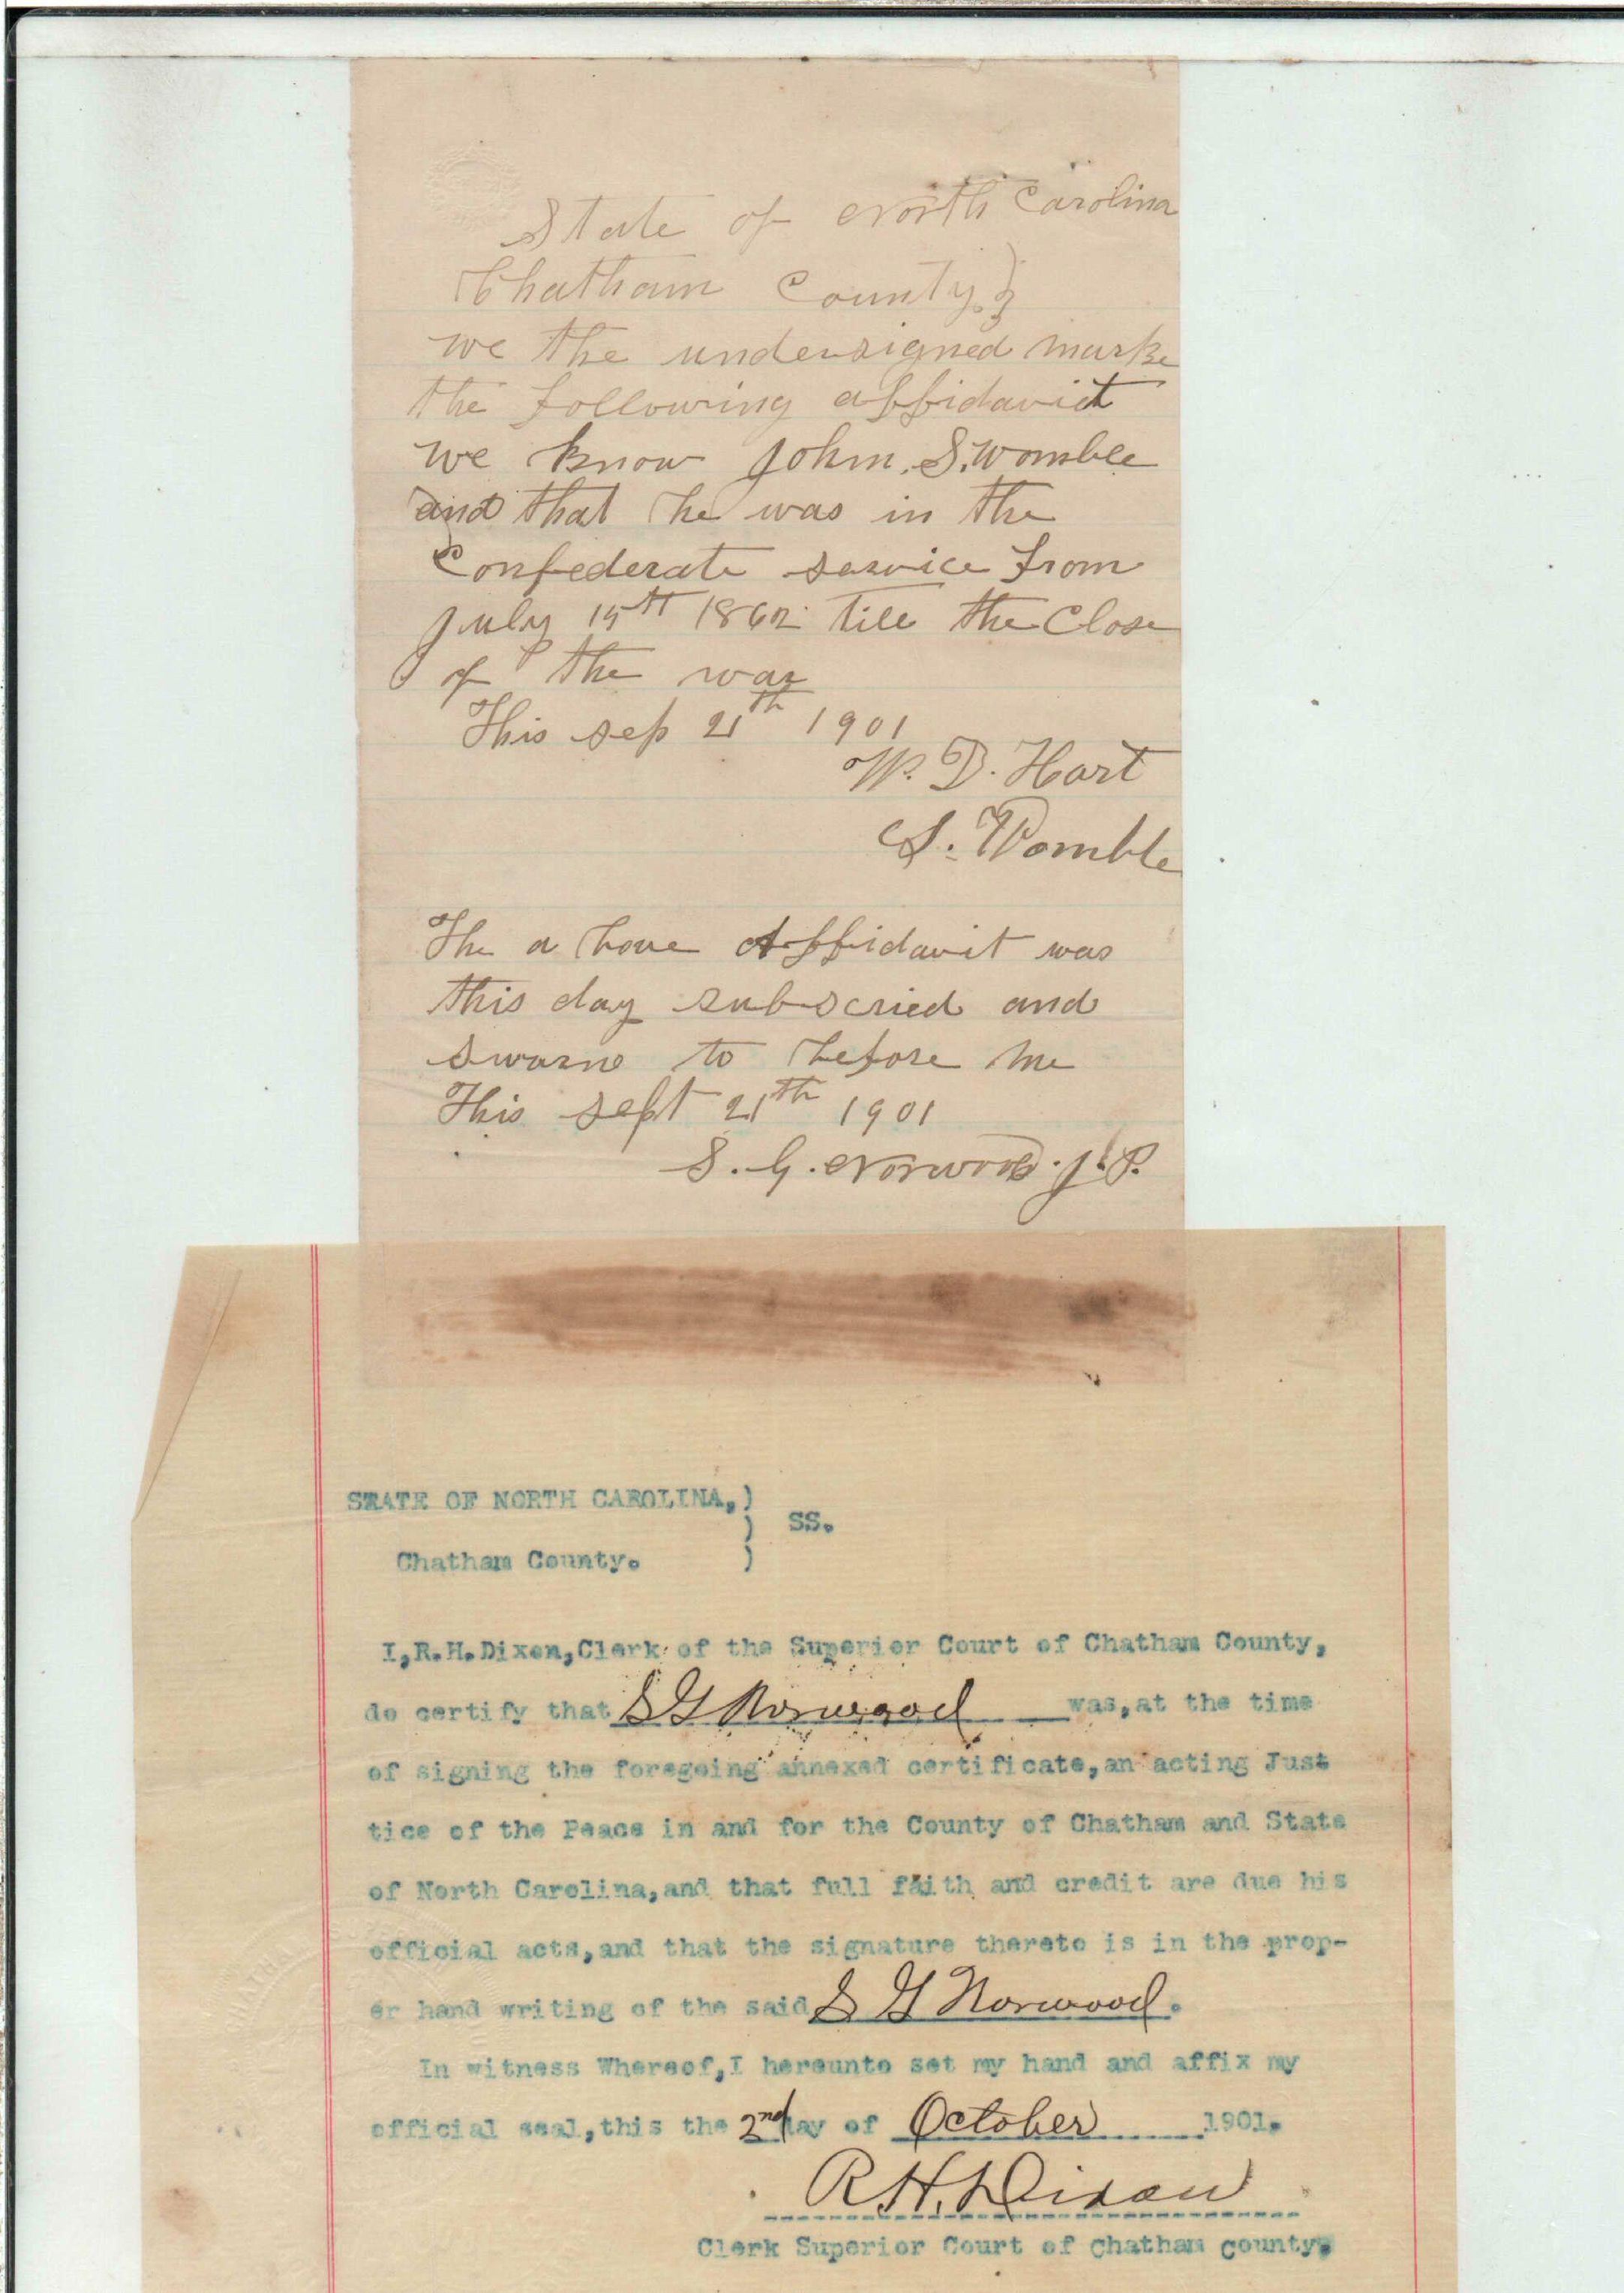 State of North Carolina
Chatham County }
we the undersigned marke
the following affidavict
we know John. S. Womble
and that he was in the
Confederate service from
July 15th 1862 till the Close
of the war
This sep 21th 1901
W. D. Hart
S. Womble
The a bove Affidavit was
this day subscried and
sworne to before me
This sept 21th 1901
S. G. Norwood. J. P.
STATE OF NORTH CAROLINA,)
) SS.
Chatham County. )
I,R.H.Dixon,Clerk of the Superior Court of Chatham County,
do certify that S G Norwood was,at the time
of signing the foregoing annexed certificate,an acting Just
tice of the Peace in and for the County of Chatham and State
of North Carolina,and that full faith and credit are due his
official acts,and that the signature thereto is in the prop-
er hand writing of the said S G Norwood.
In witness Whereof,I hereunto set my hand and affix my
official seal,this the 2nd day of October 1901.
R.H. Dixon
Clerk Superior Court of Chatham County.